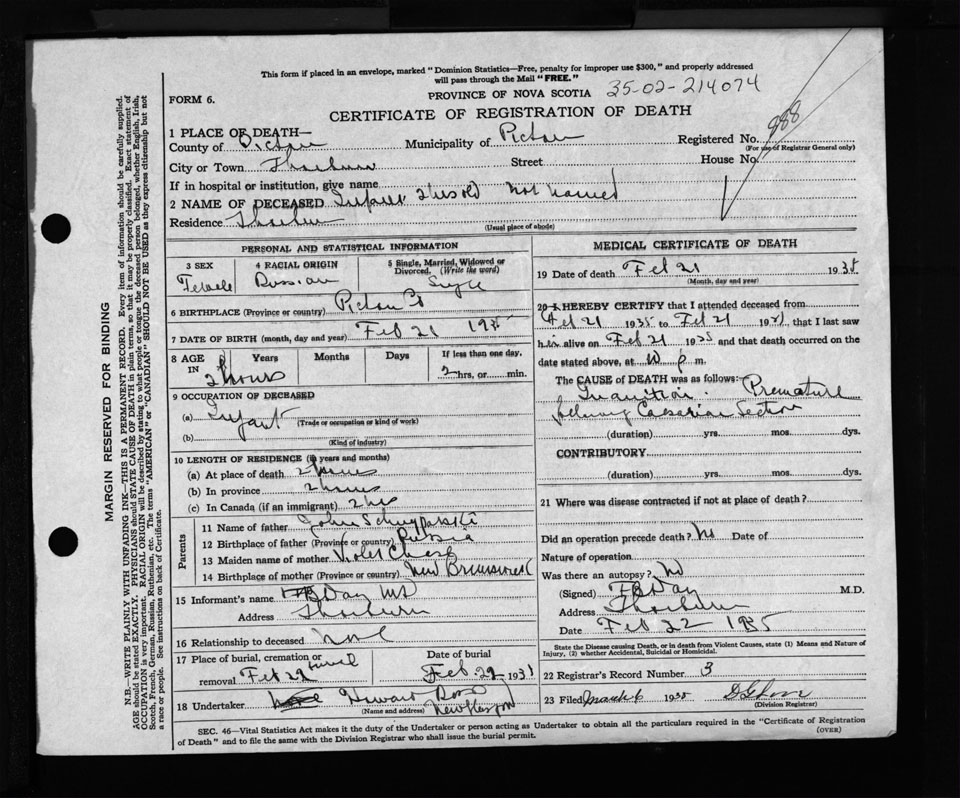 This form if placed in an envelope, marked "Dominion Statistics—Free, penalty for improper use $300," and properly addressed
will pass through the Mail "FREE."
PROVINCE OF NOVA SCOTIA 35-02-214074
FORM 6.
CERTIFICATE OF REGISTRATION OF DEATH
988
1 PLACE OF DEATH—
County of Pictou Municipality of Pictou Registered No.
(For use of Registrar General only)
City or Town Thorburn Street House No.
If in hospital or institution, give name
2 NAME OF DECEASED Infant 2 hrs old Not named
Residence Thorburn
(Usual place of abode)
PERSONAL AND STATISTICAL INFORMATION
3 SEX 4 RACIAL ORIGIN 5 Single, Married, Widowed or Divorced. (Write the word)
Female Russian Single
6 BIRTHPLACE (Province or country) Pictou Co
7 DATE OF BIRTH (month, day and year) Feb 21 1935
8 AGE IN Years Months Days If less than one day.
2 hours 2 hrs, or min.
9 OCCUPATION OF DECEASED
(a) Infant
(Trade or occupation or kind of work)
(b)
(Kind of industry)
10 LENGTH OF RESIDENCE (in years and months)
(a) At place of death 2 hours
(b) In province 2 hours
(c) In Canada (if an immigrant) 2 hrs
Parents
11 Name of father John
12 Birthplace of father (Province or country) Russia
13 Maiden name of mother Violet Chase
14 Birthplace of mother (Province or country) New Brunswick
15 Informant's name Day MD
Address Thorburn
16 Relationship to deceased none
17 Place of burial, cremation or removal Date of burial
Feb 22 Feb. 22 193
18 Undertaker Ross
(Name and address)
MEDICAL CERTIFICATE OF DEATH
19 Date of death Feb 21 1935
(Month, day and year)
20 I HEREBY CERTIFY that I attended deceased from
Feb 21 1935 to Feb 21 19, that I last saw
h alive on Feb 21 1935 and that death occurred on the
date stated above, at 10 p m.
The CAUSE of DEATH was as follows:— Premature
Inanition.
following Caesarian Section
(duration) yrs. mos. dys.
CONTRIBUTORY
(duration) yrs. mos. dys.
21 Where was disease contracted if not at place of death?
Did an operation precede death? No Date of
Nature of operation
Was there an autopsy? No
(Signed) Day M.D.
Address Thorburn
Date Feb 22 1935
State the Disease causing Death, or in death from Violent Causes, state (1) Means and Nature of
Injury, (2) whether Accidental, Suicidal or Homicidal.
22 Registrar's Record Number 3
23 Filed March 6 1935
(Division Registrar)
SEC. 46—Vital Statistics Act makes it the duty of the Undertaker or person acting as Undertaker to obtain all the particulars required in the "Certificate of Registration
of Death" and to file the same with the Division Registrar who shall issue the burial permit.
(OVER)
MARGIN RESERVED FOR BINDING
N.B.—WRITE PLAINLY WITH UNFADING INK—THIS IS A PERMANENT RECORD. Every item of information should be carefully supplied.
AGE should be stated EXACTLY. PHYSICIANS should STATE CAUSE OF DEATH in plain terms, so that it may be properly classified. Exact statement of
OCCUPATION is very important. RACIAL ORIGIN will be described by stating to what people or tongue the deceased person belonged, whether English, Irish,
Scotch, French, German, Russian, Ruthenian, etc. The terms "AMERICAN" or "CANADIAN" SHOULD NOT BE USED as they express citizenship but not
a race or people. See instructions on back of Certificate.